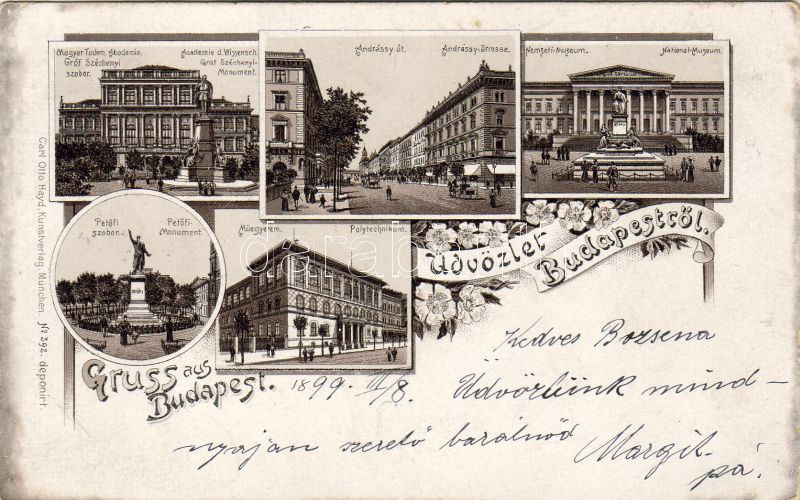 Magyar Tudom. Akadémia.
Gróf Széchenyi
szobor.
Academie d. Wissensch.
Graf Széchenyi-
Monument.
Andrássy út.
Andrássy-Strasse.
Nemzeti-Muzeum.
National-Museum.
Petőfi
szobor.
Petőfi-
Monument.
Műegyetem.
Polytechnikum.
darabanth
Üdvözlet
Budapestről.
Gruss aus
Budapest.
Carl Otto Hayd, Kunstverlag, München. No 392. deponirt
1899. III/8.
Kedves Bozsena
Üdvözlünk mind-
nyájan szerető barátnőd
Margit
pá.